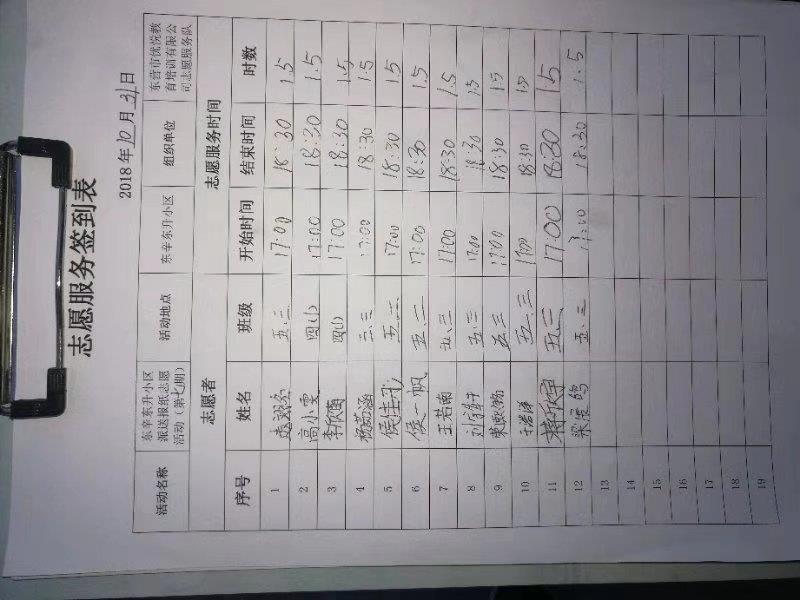 志愿服务签到表
2018年10月31日
活动名称 东辛东升小区派送报纸志愿活动（第七期） 活动地点 东辛东升小区 组织单位 东营市优悦教育培训有限公司志愿服务队
志愿者 志愿服务时间
序号 姓名 班级 开始时间 结束时间 时数
1 五.三 17:00 18:30 1.5
2 高小雯 四(1) 17:00 18:30 1.5
3 李欣 四(1) 17:00 18:30 1.5
4 杨茹涵 三.三 17:00 18:30 1.5
5 侯佳 五.三 17:00 18:30 1.5
6 侯一帆 五.三 17:00 18:30 1.5
7 王若南 五.三 17:00 18:30 1.5
8 刘 五.三 17:00 18:30 1.5
9 五.三 17:00 18:30 1.5
10 五.三 17:00 18:30 1.5
11 五.三 17:00 18:30 1.5
12 五.三 17:00 18:30 1.5
13
14
15
16
17
18
19